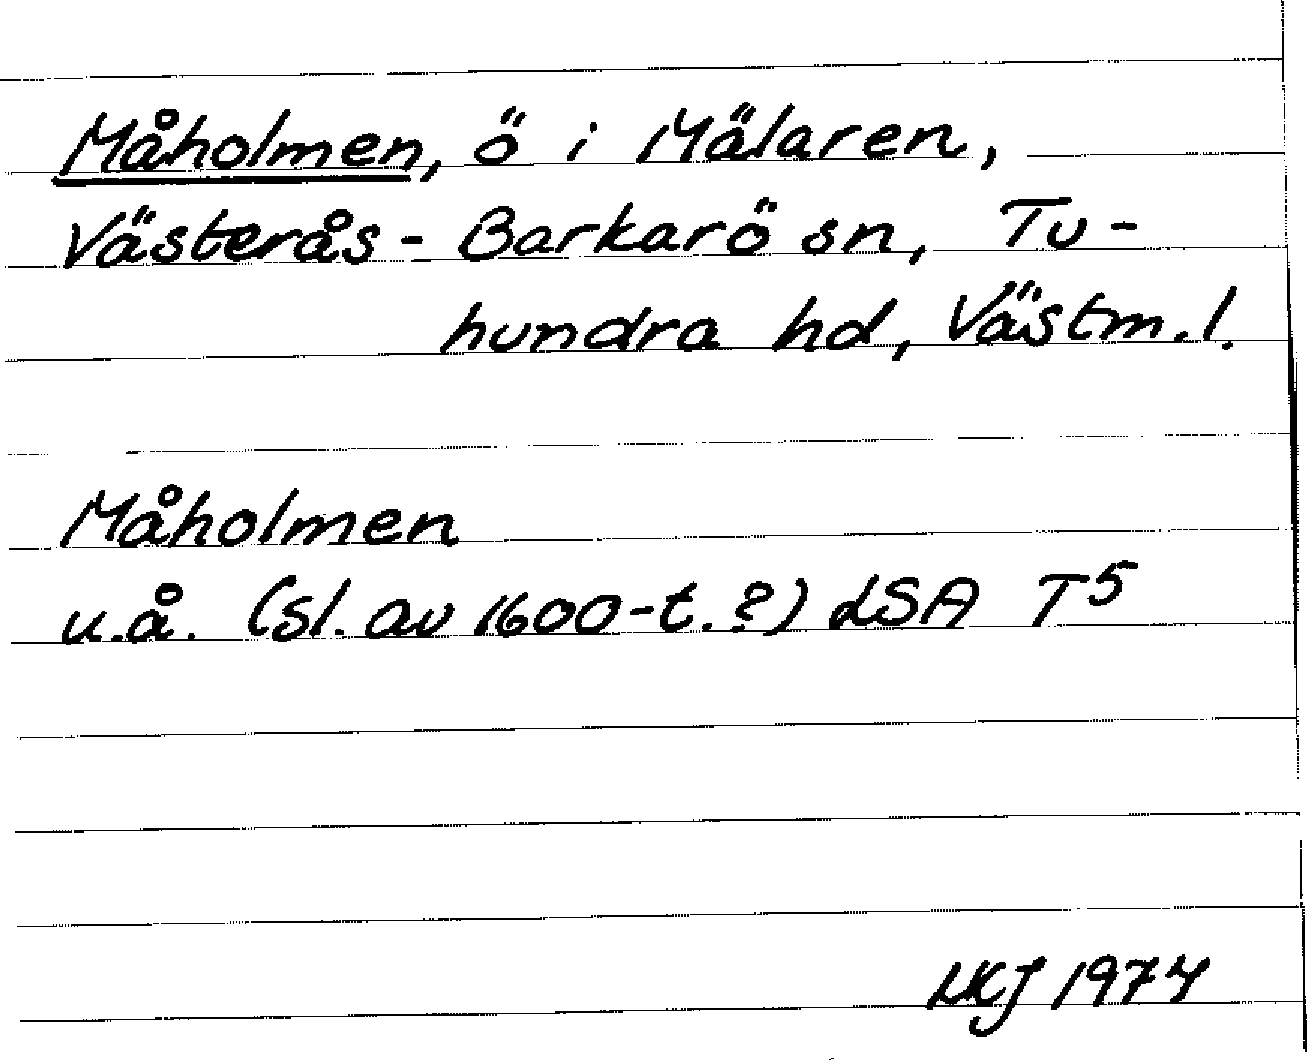 Måholmen, ö i Mälaren,
Västerås-Barkarö sn, Tu-
hundra hd, Västm.l.
Måholmen
u.å. (sl. av 1600-t.?) LSA T5
LKJ 1974